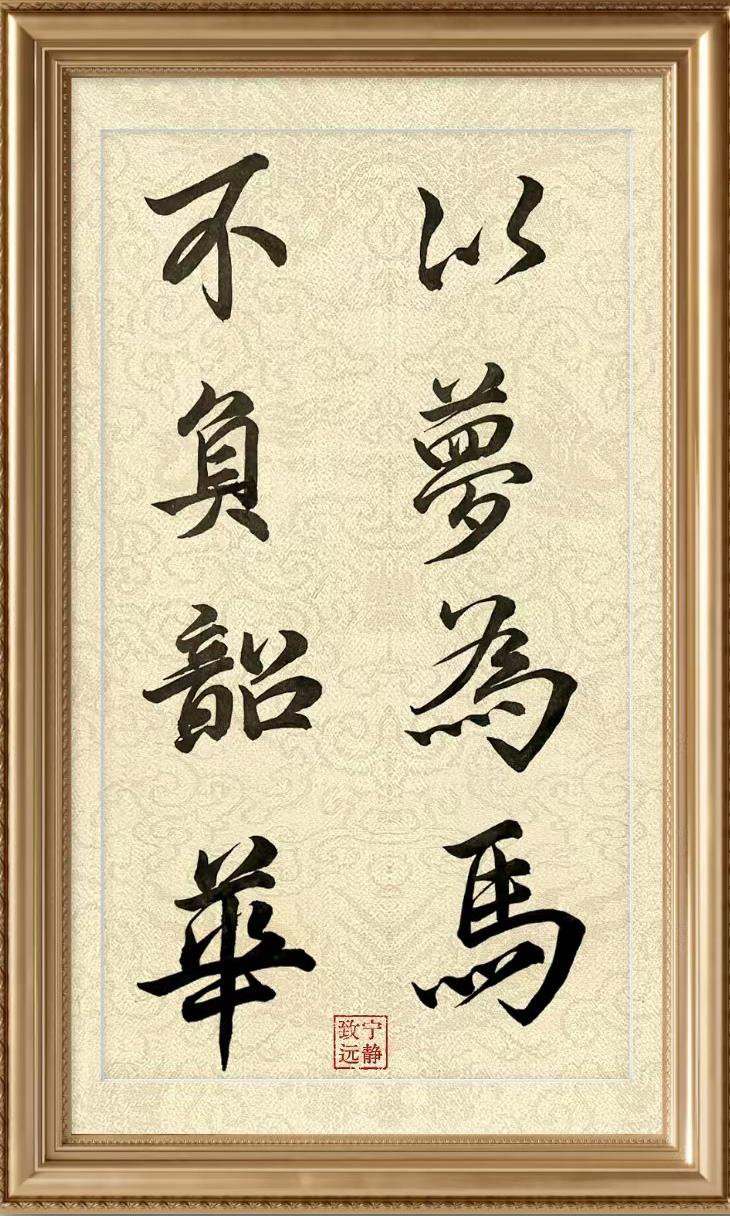 以夢為馬
不負韶華
宁静
致远